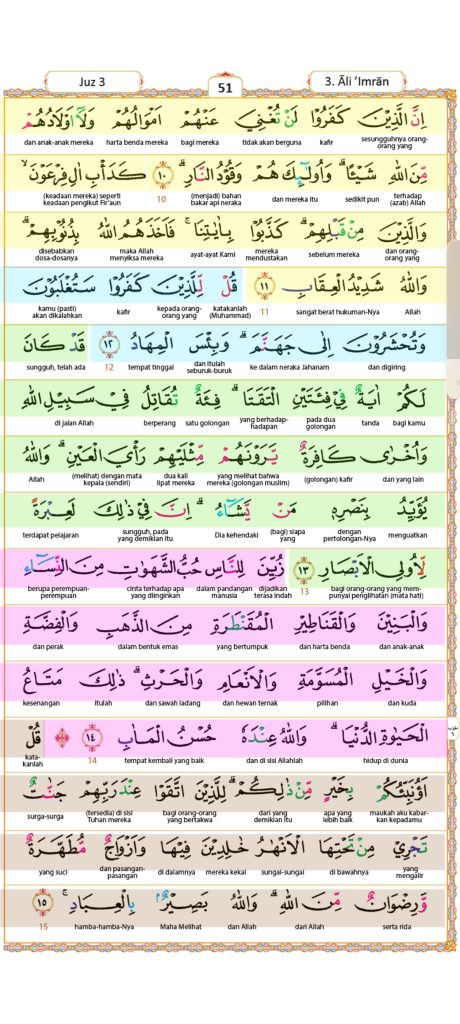 Juz 3
51
3. Āli ‘Imrān
اِنَّ الَّذِيْنَ كَفَرُوْا لَنْ تُغْنِيَ عَنْهُمْ اَمْوَالُهُمْ وَلَآ اَوْلَادُهُمْ
sesungguhnya orang-orang yang kafir tidak akan berguna bagi mereka harta benda mereka dan anak-anak mereka
مِّنَ اللّٰهِ شَيْـًٔا ۗوَاُولٰۤىِٕكَ هُمْ وَقُوْدُ النَّارِۗ ۝١٠ كَدَأْبِ اٰلِ فِرْعَوْنَۙ
terhadap (azab) Allah sedikit pun dan mereka itu (menjadi) bahan bakar api neraka 10 (keadaan mereka) seperti keadaan pengikut Fir'aun
وَالَّذِيْنَ مِنْ قَبْلِهِمْۗ كَذَّبُوْا بِاٰيٰتِنَاۚ فَاَخَذَهُمُ اللّٰهُ بِذُنُوْبِهِمْۗ
dan orang-orang yang sebelum mereka mereka mendustakan ayat-ayat Kami maka Allah menyiksa mereka disebabkan dosa-dosanya
وَاللّٰهُ شَدِيْدُ الْعِقَابِ ۝١١ قُلْ لِّلَّذِيْنَ كَفَرُوْا سَتُغْلَبُوْنَ
Allah sangat berat hukuman-Nya 11 katakanlah (Muhammad) kepada orang-orang yang kafir kamu (pasti) akan dikalahkan
وَتُحْشَرُوْنَ اِلٰى جَهَنَّمَۗ وَبِئْسَ الْمِهَادُ ۝١٢ قَدْ كَانَ
dan digiring ke dalam neraka Jahanam dan itulah seburuk-buruk tempat tinggal 12 sungguh, telah ada
لَكُمْ اٰيَةٌ فِيْ فِئَتَيْنِ الْتَقَتَاۗ فِئَةٌ تُقَاتِلُ فِيْ سَبِيْلِ اللّٰهِ
bagi kamu tanda pada dua golongan yang berhadap-hadapan satu golongan berperang di jalan Allah
وَاُخْرٰى كَافِرَةٌ يَّرَوْنَهُمْ مِّثْلَيْهِمْ رَأْيَ الْعَيْنِۗ وَاللّٰهُ
dan yang lain (golongan) kafir yang melihat bahwa mereka (golongan muslim) dua kali lipat mereka (melihat) dengan mata kepala (sendiri) Allah
يُؤَيِّدُ بِنَصْرِهٖ مَنْ يَّشَاۤءُۗ اِنَّ فِيْ ذٰلِكَ لَعِبْرَةً
menguatkan dengan pertolongan-Nya (bagi) siapa yang Dia kehendaki sungguh, pada yang demikian itu terdapat pelajaran
لِّاُولِى الْاَبْصَارِ ۝١٣ زُيِّنَ لِلنَّاسِ حُبُّ الشَّهَوٰتِ مِنَ النِّسَاۤءِ
bagi orang-orang yang mempunyai penglihatan (mata hati) 13 dijadikan terasa indah dalam pandangan manusia cinta terhadap apa yang diinginkan berupa perempuan-perempuan
وَالْبَنِيْنَ وَالْقَنَاطِيْرِ الْمُقَنْطَرَةِ مِنَ الذَّهَبِ وَالْفِضَّةِ
dan anak-anak dan harta benda yang bertumpuk dalam bentuk emas dan perak
وَالْخَيْلِ الْمُسَوَّمَةِ وَالْاَنْعَامِ وَالْحَرْثِۗ ذٰلِكَ مَتَاعُ
dan kuda pilihan dan hewan ternak dan sawah ladang itulah kesenangan
الْحَيٰوةِ الدُّنْيَاۗ وَاللّٰهُ عِنْدَهٗ حُسْنُ الْمَاٰبِ ۝١٤ ۞ قُلْ
hidup di dunia dan di sisi Allahlah tempat kembali yang baik 14 katakanlah
اَؤُنَبِّئُكُمْ بِخَيْرٍ مِّنْ ذٰلِكُمْۗ لِلَّذِيْنَ اتَّقَوْا عِنْدَ رَبِّهِمْ جَنّٰتٌ
maukah aku kabarkan kepadamu apa yang lebih baik dari yang demikian itu bagi orang-orang yang bertakwa (tersedia) di sisi Tuhan mereka surga-surga
تَجْرِيْ مِنْ تَحْتِهَا الْاَنْهٰرُ خٰلِدِيْنَ فِيْهَا وَاَزْوَاجٌ مُّطَهَّرَةٌ
yang mengalir di bawahnya sungai-sungai mereka kekal di dalamnya dan pasangan-pasangan yang suci
وَّرِضْوَانٌ مِّنَ اللّٰهِۗ وَاللّٰهُ بَصِيْرٌۢ بِالْعِبَادِۚ ۝١٥
serta rida dari Allah dan Allah Maha Melihat hamba-hamba-Nya 15